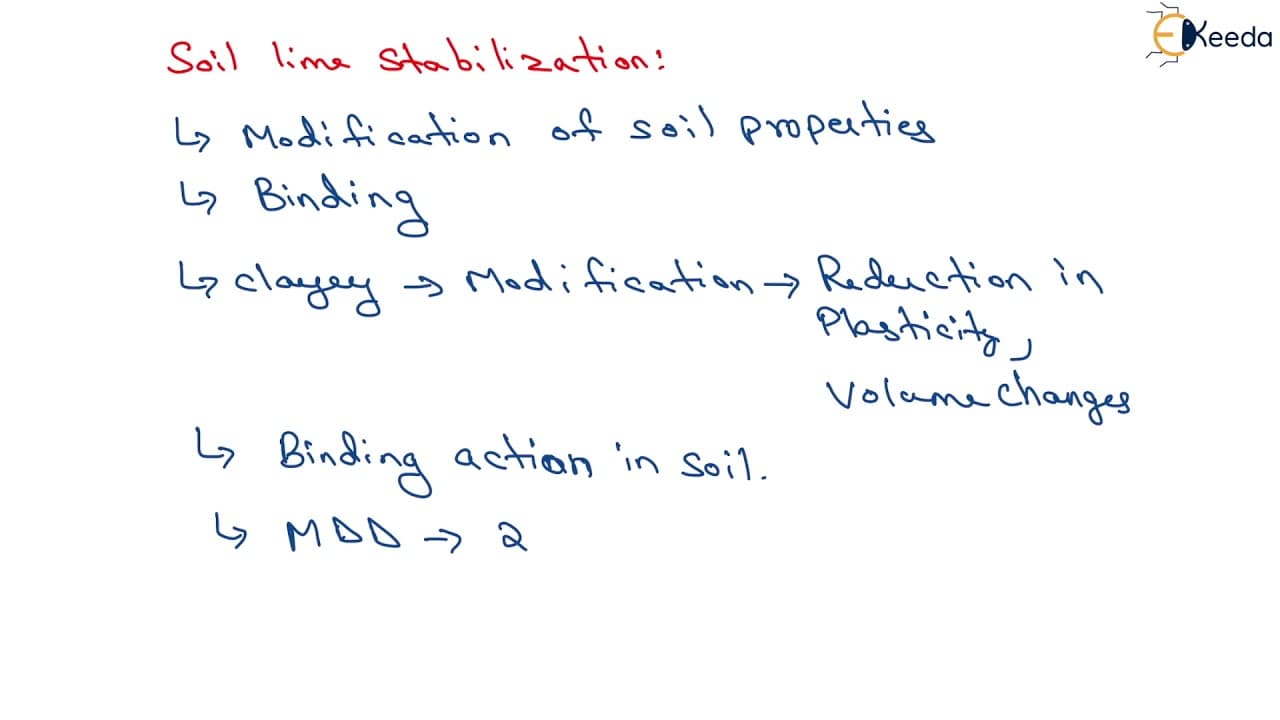 Keeda
Soil lime stabilization:
↳ Modification of soil properties
↳ Binding
↳ clayey → Modification → Reduction in
Plasticity,
Volume changes
↳ Binding action in soil.
↳ MDD → 2